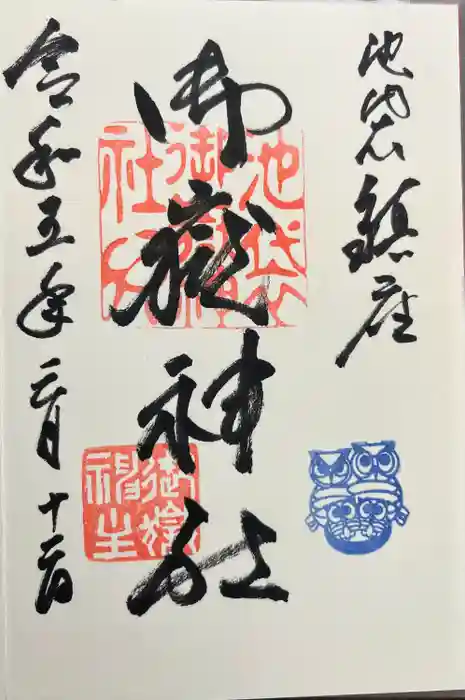 池袋鎮座
御嶽神社
令和五年二月十二日
池袋
御嶽神
社
御嶽
神主